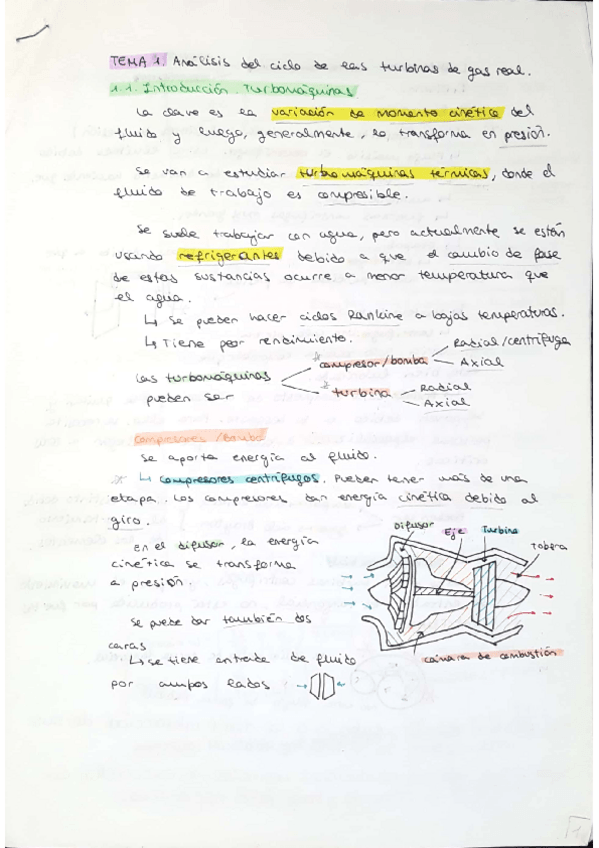 TEMA 1. Análisis del ciclo de las turbinas de gas real.
1.1. Introducción. Turbomáquinas
La clave es la variación de momento cinético del
fluido y luego, generalmente, lo transforma en presión.
Se van a estudiar turbomáquinas térmicas, donde el
fluido de trabajo es compresible.
Se suele trabajar con agua, pero actualmente se están
usando refrigerantes debido a que el cambio de fase
de estas sustancias ocurre a menor temperatura que
el agua.
↳ Se pueden hacer ciclos Rankine a bajas temperaturas.
↳ Tiene peor rendimiento.
Las turbomáquinas
pueden ser
* compresor/bomba
Radial/centrífuga
Axial
* turbina
Radial
Axial
Compresores/bomba
Se aporta energía al fluido.
↳ compresores centrífugos. Pueden tener más de una
etapa. Los compresores dan energía cinética debido al
giro.
En el difusor, la energía
cinética se transforma
a presión.
Se puede dar también dos
caras
↳ se tiene entrada de fluido
por ambos lados
Difusor
Eje
Turbina
Tobera
cámara de combustión
1